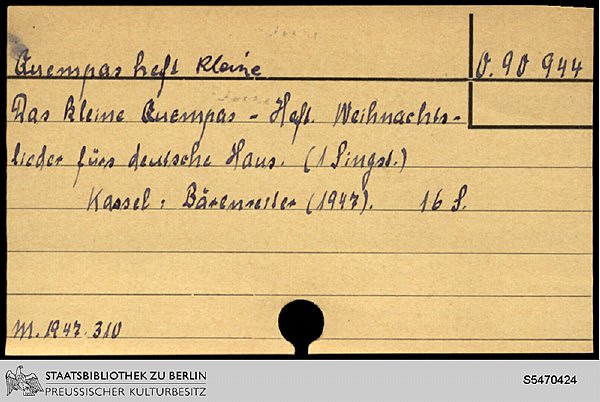 Quempasheft Kleine
O. 90 944
Das kleine Quempas-Heft. Weihnachts-
lieder fürs deutsche Haus. (1 Singst.)
Kassel: Bärenreiter (1947). 16 S.
M. 1947. 310
STAATSBIBLIOTHEK ZU BERLIN
PREUSSISCHER KULTURBESITZ
S5470424